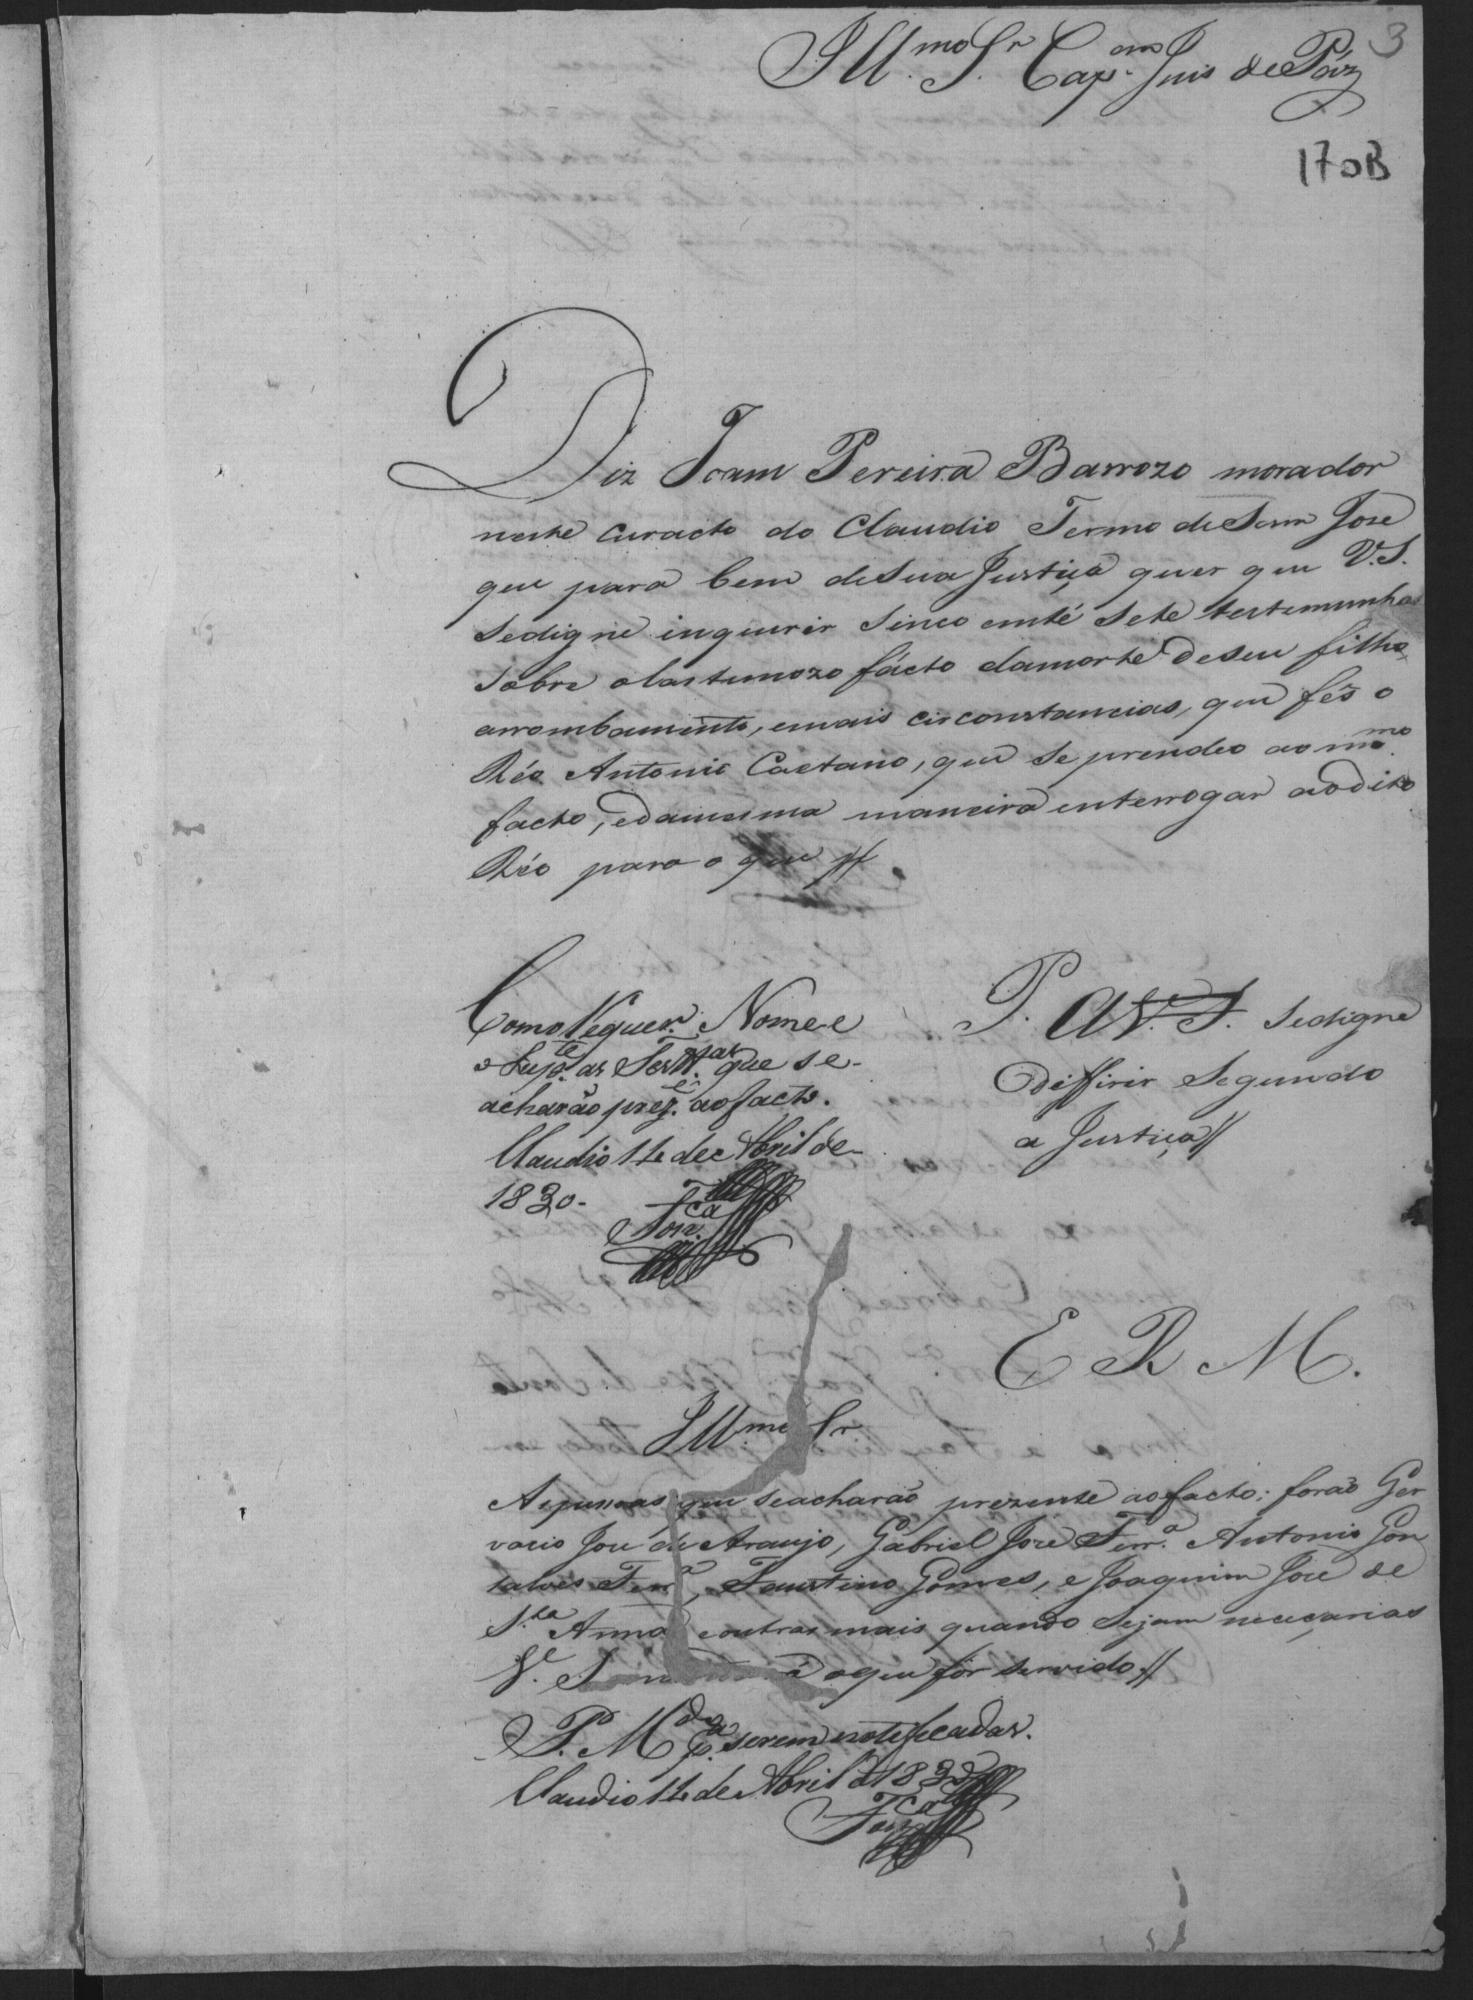 3
Ill.mo Sr. Cap.am Juis de Páz
170B
Diz Joam Pereira Barrozo morador
neste curacto do Claudio Termo de Sam Jose
que para bem desua Justiça quer que V.S.
sedigne inquerir sinco emté sete testemunhas
sobre olastemozo fácto damorte deseu filho,
arrombamento, emais circonstancias, que fés o
Réo Antonio Caetano, que se prendeo ao mmo.
facto, edamesma maneira enterrogar aodito
Réo para o que //
Como Requer. Nomee
o Supe. as Testas. que se-
acharão preze. aofacto.
Claudio 14 de Abril de
1830-
Fonca.
P. A V. S. sedigne
differir segundo
a Justiça //
E R M.
Ill.mo Sr
Aspessoas que seacharão prezente aofacto: forão Ger
vacio Jose de Araujo, Gabriel Joze Ferr.a Antonio Gon
salves Ferr.a, Faustino Gomes, e Joaquim Joze de
S.ta Anna eoutras mais quando sejam neceçarias
V. S. oque for servido //
P. M.do p.a serem notificadas.
Claudio 14 de Abril d 1830
Fonca.